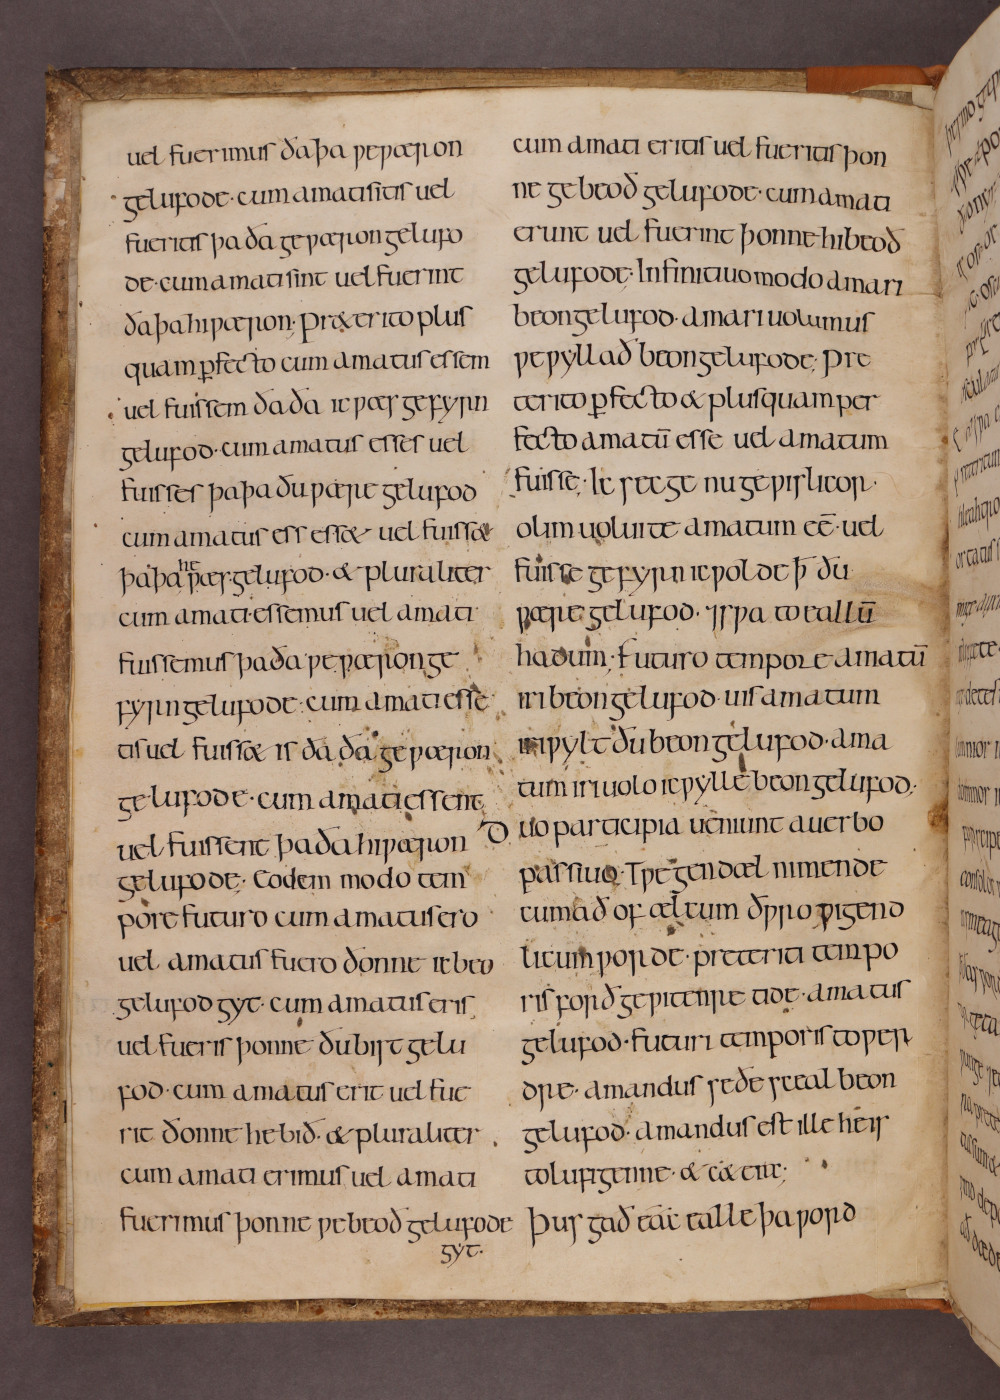 uel fuerimus ðaþa ƿeƿæron
gelufode· cum amati sitis uel
fueritis þa ða ge ƿæron gelufo
de· cum amati sint uel fuerint
ðaþa hi ƿæron; Præterito plus
quam ꝑfecto cum amatus essem
uel fuissem ða ða ic ƿæs gefyrn
gelufod· cum amatus esses uel
fuisses þaþa ðu ƿære gelufod
cum amatus ess esset uel fuisset
þaþa he ƿæs gelufod· & pluraliter
cum amati· essemus uel amati
fuissemus þa ða ƿe ƿæron ge
fyrn gelufode· cum amati esse
tis uel fuissetis ða ða ge ƿæron
gelufode· cum amati essent
uel fuissent þa ða hi ƿæron
gelufode; Eodem modo tem
pore futuro cum amatus ero
uel amatus fuero ðonne ic beo
gelufod gyt· cum amatus eris
uel fueris þonne ðu bist gelu
fod· cum amatus erit uel fue
rit ðonne he bið· & pluraliter
cum amati erimus uel amati
fuerimus þonne ƿe beoð gelufode
gyt·
cum amati eritis uel fueritis þon
ne ge beoð gelufode· cum amati
erunt uel fuerint þonne hi beoð
gelufode· Infinitiuo modo amari
beon gelufod· amari uolumus
ƿe ƿyllað beon gelufode; Pre
terito ꝑfecto & plusquam per
fecto amatū esse uel amatum
fuisse; Ic secge nu gepislicor·
olim uoluite amatum eē· uel
fuisse gefyrn ic ƿolde þ̄ ðu
ƿære gelufod· ⁊ sƿa to eallū
hadum; Futuro tempore amatū
iri beon gelufod· uis amatum
iri ƿylt ðu beon gelufod· ama
tum iri uolo ic ƿylle beon gelufod;
Duo participia ueniunt a uerbo
passiuo· Tƿegen dæl nimende
cumað of ælcum ðroƿigend
licum ƿorde· preteriti tempo
ris forðgeƿitenre tide· amatus
gelufod· futuri temporis toƿer
dre· amandus seðe sceal beon
gelufod· amandus est ille he is
to lufigenne· & cæt̄;
Þus gað eac ealle þa ƿord